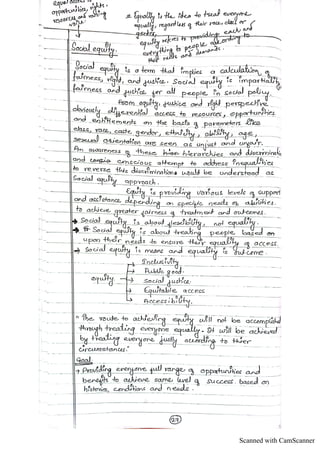 equal access to
opportunities, rights,
resources and voting
voice
* Equality is the idea to treat everyone
equally, regardless of their race, class or
gender.
equity refers to providing each and
everything to people according to
their needs and demands.
Social equity.
Social equity is a term that implies a calculation of
fairness, right, and justice. Social equity is impartiality,
fairness and justice for all people in social policy.
From equity, justice and right perspective
obviously differential access to resources, opportunities
and entitlements on the basis of parameters like
class, race, caste, gender, ethnicity, ability, age,
sexual orientation are seen as unjust and unfair.
An awareness of these hier hierarchies and discriminatn
and conscio conscious attempt to address inequalities
to reverse this discriminations would be understood as
Social equity approach.
Equity is providing various levels of support
and assistance depending on specific needs of abilities.
to achieve greater fairness of treatment and outcomes.
→ Social equity is about flexibility, not equality.
→ # Social equity is about treating people based on
upon their needs to ensure their equality of access.
→ Social equity is means and equality is outcome.
→ Inclusivity
→ Public good
equity → Social justice
→ Equitable access
→ Accessibility.
"The route to achieving equity will not be accomplished
through treating everyone equally. It will be achieved
by treating everyone justly according to thier
circumstances."
Goal
→ Providing everyone full range of opportunities and
benefits to achieve same level of success. based on
historic, conditions and needs.
Scanned with CamScanner